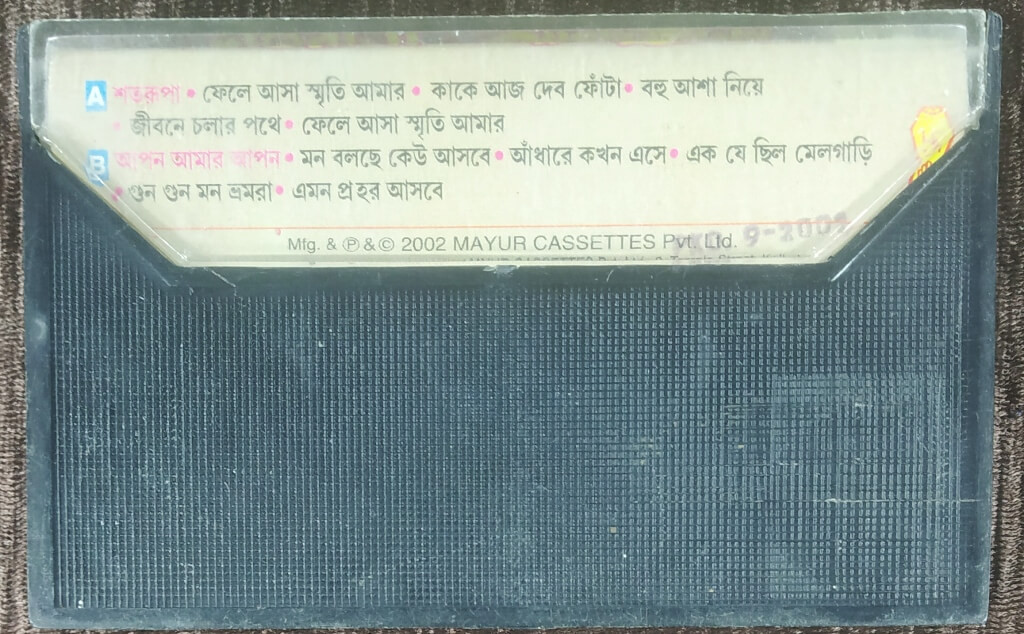 A শতরূপা • ফেলে আসা স্মৃতি আমার • কাকে আজ দেব ফোঁটা • বহু আশা নিয়ে
• জীবনে চলার পথে • ফেলে আসা স্মৃতি আমার
B আপন আমার আপন • মন বলছে কেউ আসবে • আঁধারে কখন এসে • এক যে ছিল মেলগাড়ি
• গুন গুন মন ভ্রমরা • এমন প্রহর আসবে
Mfg. & ℗ & © 2002 MAYUR CASSETTES Pvt. Ltd.